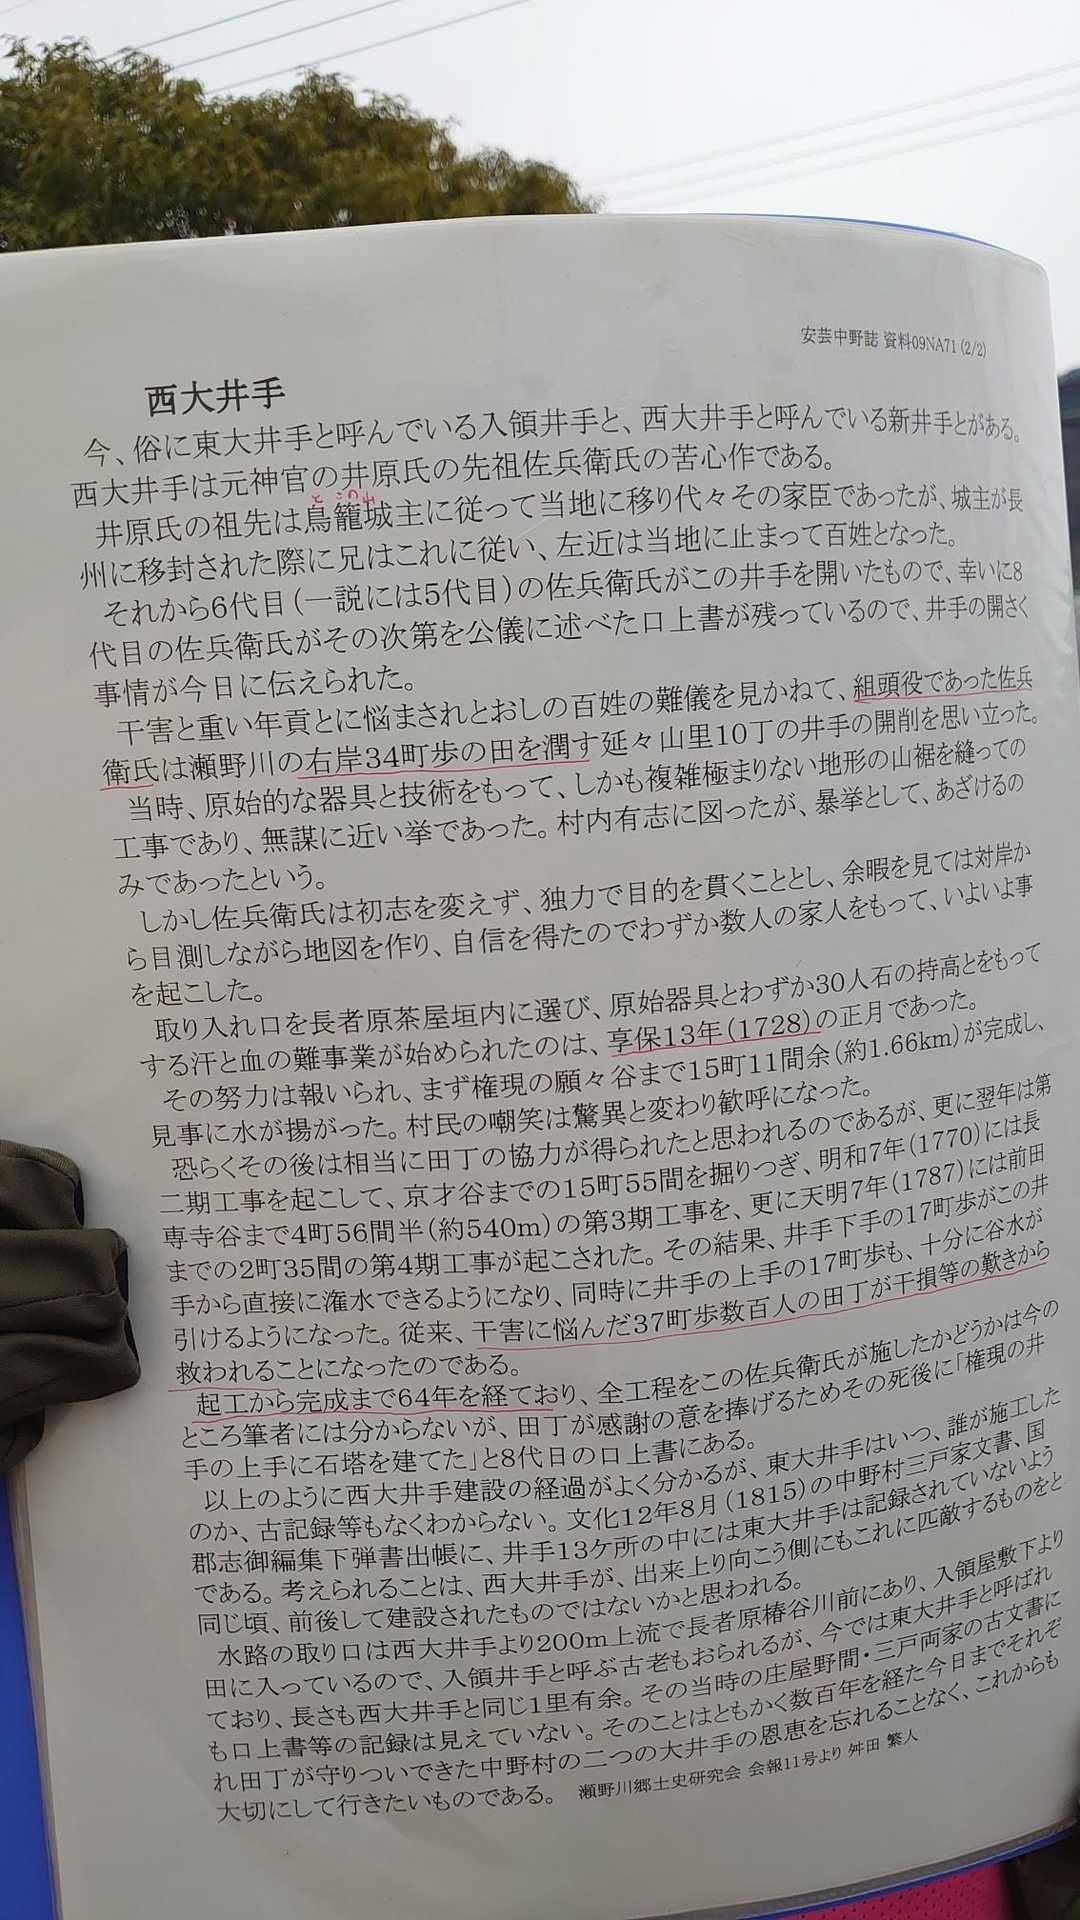 安芸中野誌 資料09NA71 (2/2)
西大井手
今、俗に東大井手と呼んでいる入領井手と、西大井手と呼んでいる新井手とがある。
西大井手は元神官の井原氏の先祖佐兵衛氏の苦心作である。
とこの山
井原氏の祖先は鳥籠城主に従って当地に移り代々その家臣であったが、城主が長
州に移封された際に兄はこれに従い、左近は当地に止まって百姓となった。
それから6代目(一説には5代目)の佐兵衛氏がこの井手を開いたもので、幸いに8
代目の佐兵衛氏がその次第を公儀に述べた口上書が残っているので、井手の開さく
事情が今日に伝えられた。
干害と重い年貢とに悩まされとおしの百姓の難儀を見かねて、組頭役であった佐兵
衛氏は瀬野川の右岸34町歩の田を潤す延々山里10丁の井手の開削を思い立った。
当時、原始的な器具と技術をもって、しかも複雑極まりない地形の山裾を縫っての
工事であり、無謀に近い挙であった。村内有志に図ったが、暴挙として、あざけるの
みであったという。
しかし佐兵衛氏は初志を変えず、独力で目的を貫くこととし、余暇を見ては対岸か
ら目測しながら地図を作り、自信を得たのでわずか数人の家人をもって、いよいよ事
を起こした。
取り入れ口を長者原茶屋垣内に選び、原始器具とわずか30人石の持高とをもって
する汗と血の難事業が始められたのは、享保13年(1728)の正月であった。
その努力は報いられ、まず権現の願々谷まで15町11間余(約1.66km)が完成し、
見事に水が揚がった。村民の嘲笑は驚異と変わり歓呼になった。
恐らくその後は相当に田丁の協力が得られたと思われるのであるが、更に翌年は第
二期工事を起こして、京才谷までの15町55間を掘りつぎ、明和7年(1770)には長
専寺谷まで4町56間半(約540m)の第3期工事を、更に天明7年(1787)には前田
までの2町35間の第4期工事が起こされた。その結果、井手下手の17町歩がこの井
手から直接に潅水できるようになり、同時に井手の上手の17町歩も、十分に谷水が
引けるようになった。従来、干害に悩んだ37町歩数百人の田丁が干損等の歎きから
救われることになったのである。
起工から完成まで64年を経ており、全工程をこの佐兵衛氏が施したかどうかは今の
ところ筆者には分からないが、田丁が感謝の意を捧げるためその死後に「権現の井
手の上手に石塔を建てた」と8代目の口上書にある。
以上のように西大井手建設の経過がよく分かるが、東大井手はいつ、誰が施工した
のか、古記録等もなくわからない。文化12年8月(1815)の中野村三戸家文書、国
郡志御編集下弾書出帳に、井手13ケ所の中には東大井手は記録されていないよう
である。考えられることは、西大井手が、出来上り向こう側にもこれに匹敵するものをと
同じ頃、前後して建設されたものではないかと思われる。
水路の取り口は西大井手より200m上流で長者原椿谷川前にあり、入領屋敷下より
田に入っているので、入領井手と呼ぶ古老もおられるが、今では東大井手と呼ばれ
ており、長さも西大井手と同じ1里有余。その当時の庄屋野間・三戸両家の古文書に
も口上書等の記録は見えていない。そのことはともかく数百年を経た今日までそれぞ
れ田丁が守りついできた中野村の二つの大井手の恩恵を忘れることなく、これからも
大切にして行きたいものである。 瀬野川郷土史研究会 会報11号より 舛田 繁人